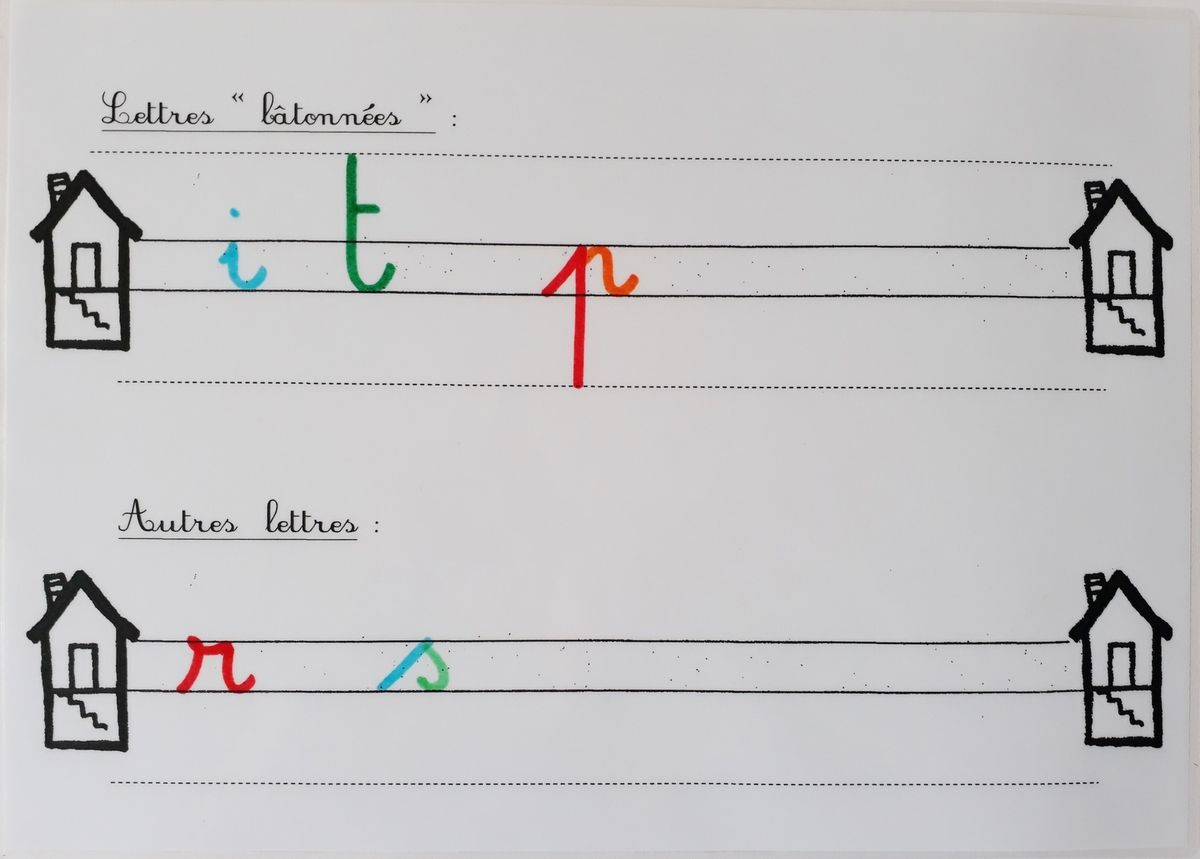 Lettres " bâtonnées " :
i t p
Autres lettres :
r s